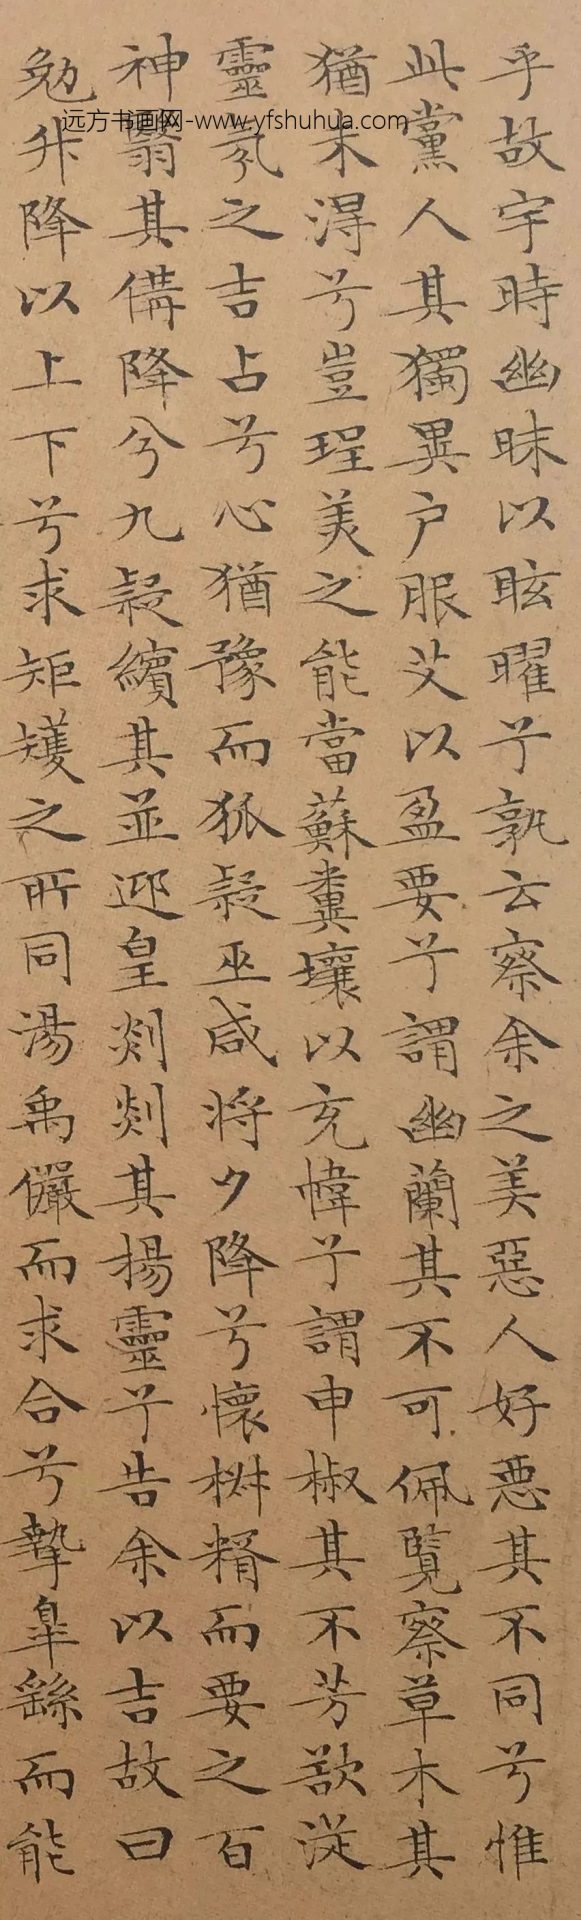 乎故宇時幽昧以眩曜兮孰云察余之美惡人好惡其不同兮惟
此黨人其獨異户服艾以盈要兮謂幽蘭其不可佩覽察草木其
猶未得兮豈珵美之能當蘇糞壤以充幃兮謂申椒其不芳欲從
靈氛之吉占兮心猶豫而狐疑巫咸將夕降兮懷椒糈而要之百
神翳其備降兮九疑繽其並迎皇剡剡其揚靈兮告余以吉故曰
勉升降以上下兮求矩矱之所同湯禹儼而求合兮摯皐繇而能
远方书画网-www.yfshuhua.com